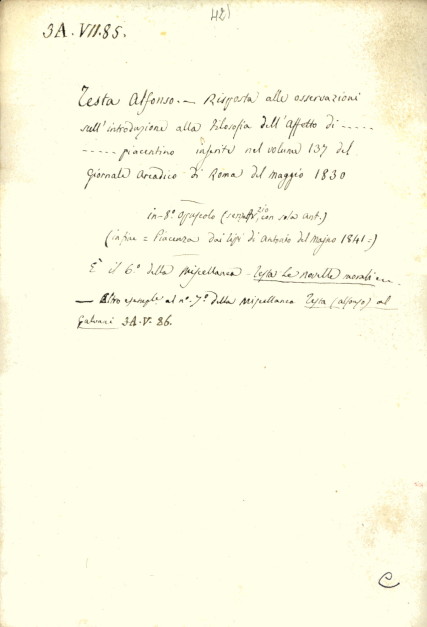 421
3A. VII. 85.
Testa Alfonso. — Risposta alle osservazioni
sull'introduzione alla Filosofia dell'Affetto di -----
----- piacentino inserite nel volume 137 del
Giornale Arcadico di Roma del Maggio 1830
in-8° opuscolo (senza con solo ant.)
(infine = Piacenza dai tipi di Antonio del Majno 1841=)
È il 6° della Miscellanea - Testa Le novelle morali
— Altro esemple al n° 7° della Miscellanea Testa (Alfonso) al
Galvani 3A. V. 86.
C